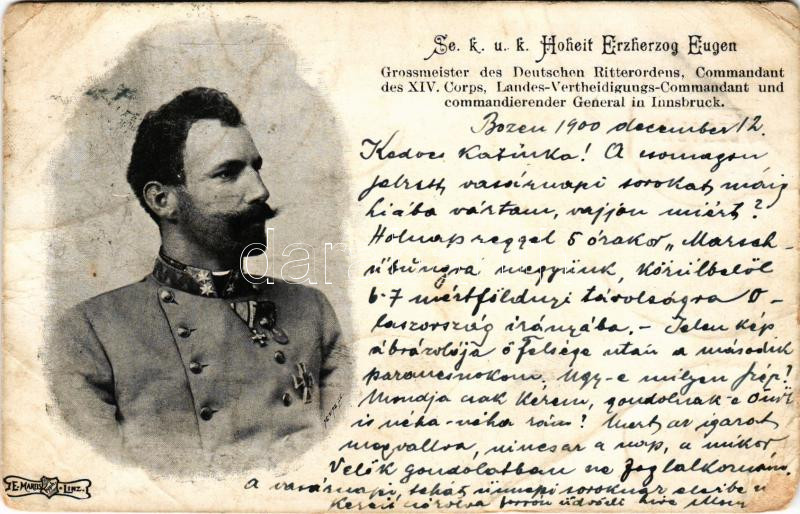 Se. k. u. k. Hoheit Erzherzog Eugen
Grossmeister des Deutschen Ritterordens, Commandant
des XIV. Corps, Landes-Vertheidigungs-Commandant und
commandierender General in Innsbruck.
Bozen 1900 december 12.
Kedves Katinka! A csomagon
jelzett vasárnapi sorokat máig
hiába vártam, vajjon miért?
Holnap reggel 5 órakor „Marsch-
übungra megyünk, körülbelöl
6-7 mértföldnyi távolságra O-
laszország irányába. - Jelen kép
ábrázolója ő Felsége után a második
parancsnokom. Ugy-e milyen szép?
Mondja csak kérem, gondolnak-e Önök
is néha-néha rám? Mert az igazat
megvallva, nincsen a nap, a mikor
Velök gondolatban ne foglalkoznám.
a vasárnapi, tehát ünnepi sorokat
kérem
E. MAREIS LINZ.
darabanth